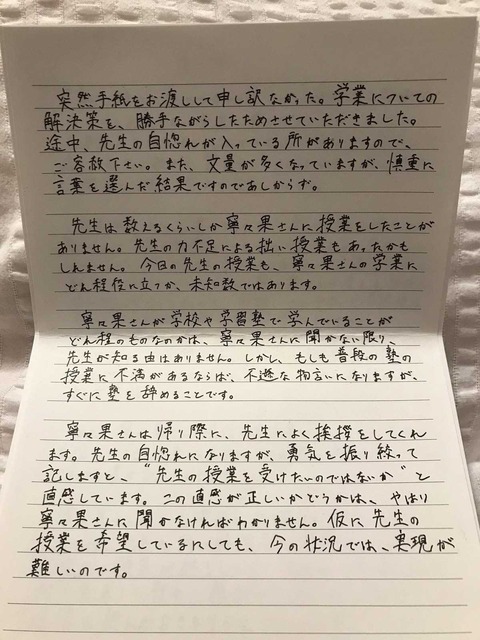 突然手紙をお渡しして申し訳なかった。学業についての
解決策を、勝手ながらしたためさせていただきました。
途中、先生の自惚れが入っている所がありますので、
ご容赦下さい。また、文量が多くなっていますが、慎重に
言葉を選んだ結果ですのであしからず。
先生は数えるくらいしか寧々果さんに授業をしたことが
ありません。先生の力不足による拙い授業もあったかも
しれません。今日の先生の授業も、寧々果さんの学業に
どれ程役に立つか、未知数ではあります。
寧々果さんが学校や学習塾で学んでいることが
どれ程のものなのかは、寧々果さんに聞かない限り、
先生が知る由はありません。しかし、もしも普段の塾の
授業に不満があるならば、不遜な物言いになりますが、
すぐに塾を辞めることです。
寧々果さんは帰り際に、先生によく挨拶をしてくれ
ます。先生の自惚れになりますが、勇気を振り絞って
記しますと、"先生の授業を受けたいのではないか"と
直感しています。この直感が正しいかどうかは、やはり
寧々果さんに聞かなければわかりません。仮に先生の
授業を希望しているにしても、今の状況では、実現が
難しいのです。